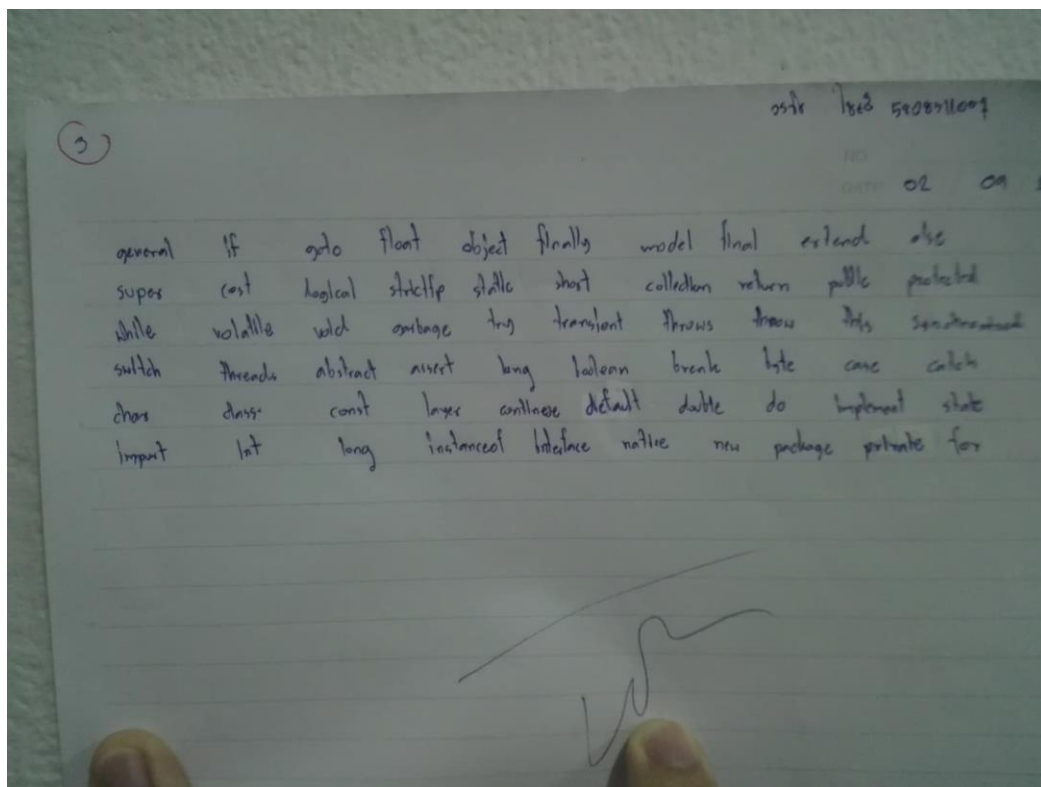 3
NO.
DATE 02 09
general if goto float object finally model final extend else
super cast logical strictfp static short collection return public protected
while volatile void garbage try transient throws throw this synchronized
switch threads abstract assert long boolean break byte case catch
char class const layer continese default double do implement state
import int long instanceof interface native new package private for